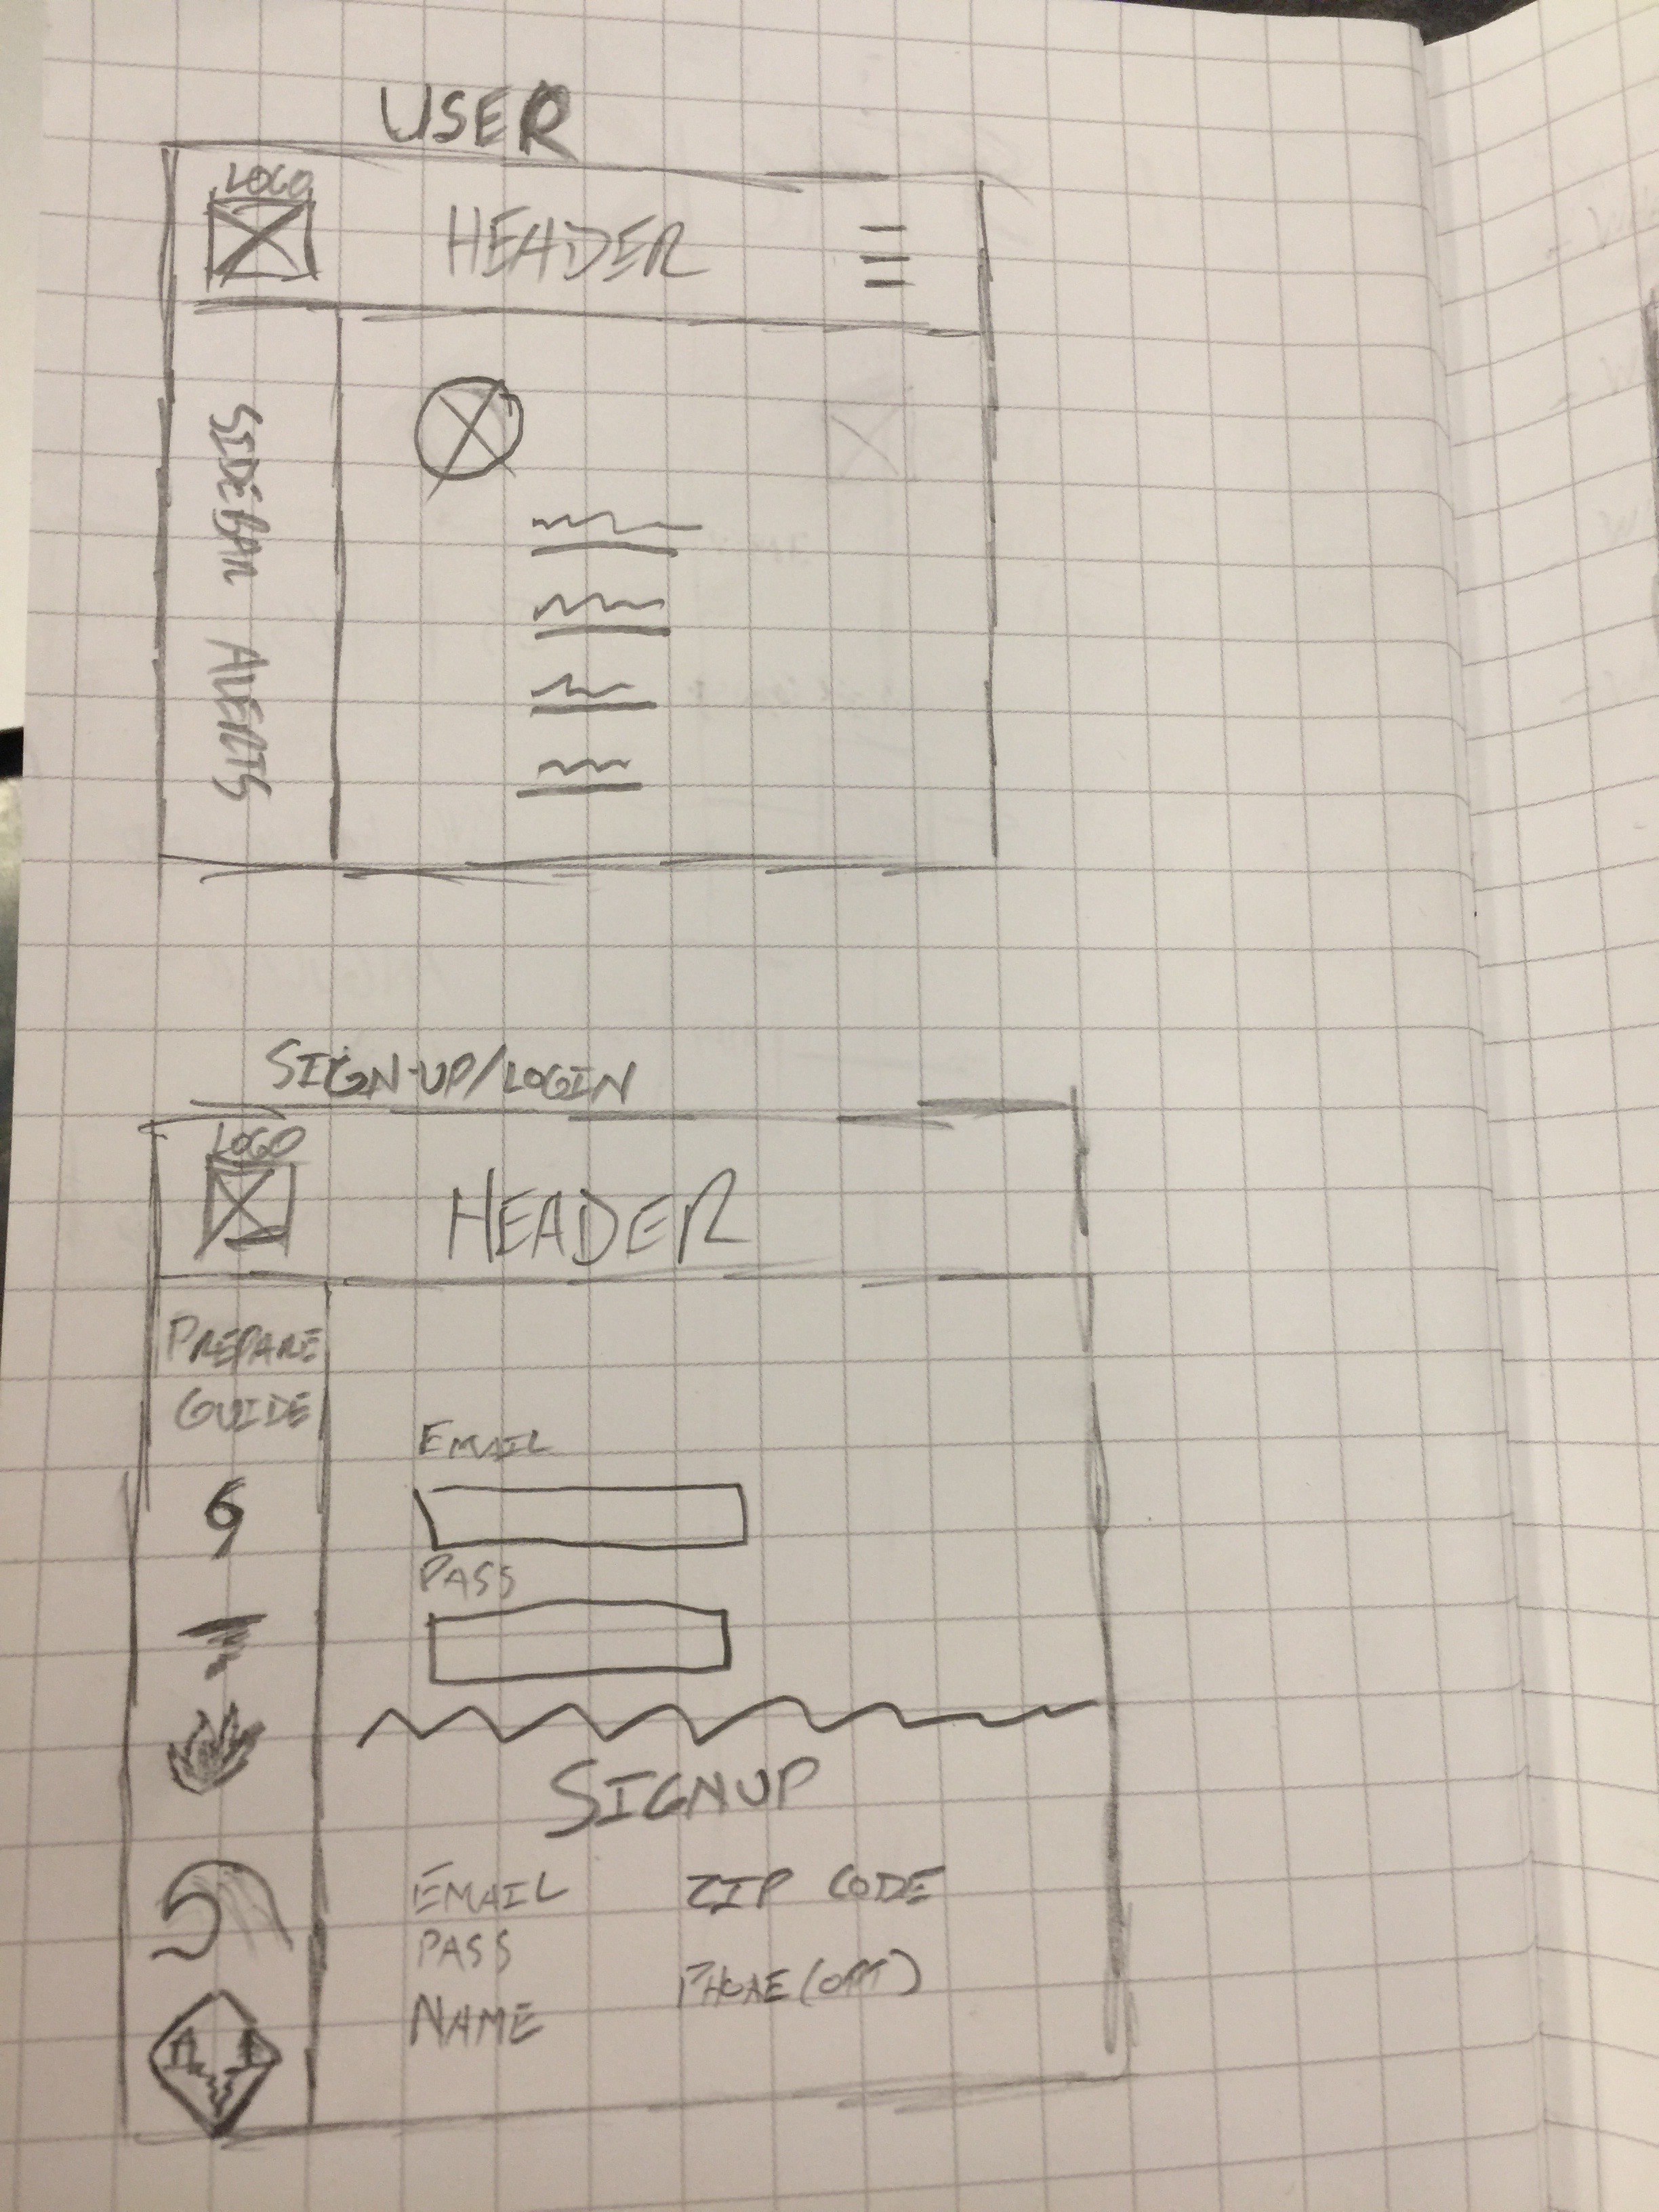 USER
LOGO
HEADER
SIDEBAR ALERTS
SIGN-UP/LOGIN
LOGO
HEADER
PREPARE
GUIDE
EMAIL
PASS
SIGNUP
EMAIL ZIP CODE
PASS
PHONE (OPT)
NAME